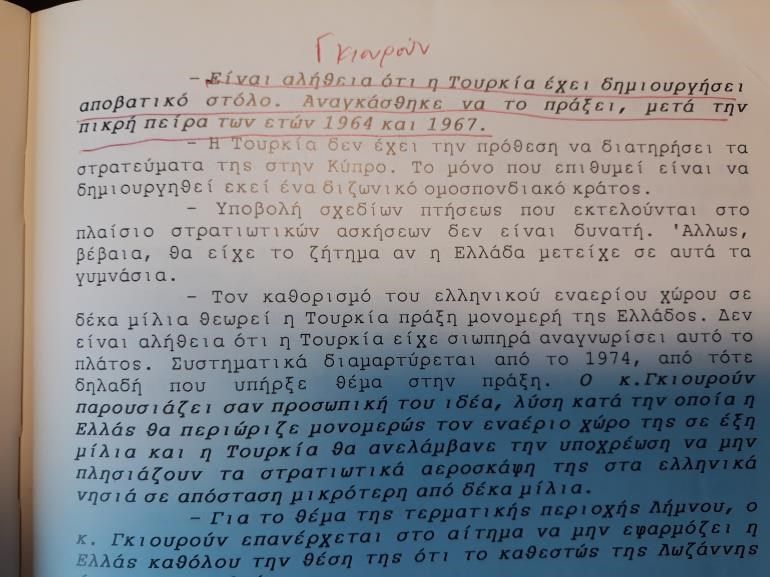 Γκιουρούν
– Είναι αλήθεια ότι η Τουρκία έχει δημιουργήσει
αποβατικό στόλο. Αναγκάσθηκε να το πράξει, μετά την
πικρή πείρα των ετών 1964 και 1967.
– Η Τουρκία δεν έχει την πρόθεση να διατηρήσει τα
στρατεύματα της στην Κύπρο. Το μόνο που επιθυμεί είναι να
δημιουργηθεί εκεί ένα διζωνικό ομοσπονδιακό κράτος.
– Υποβολή σχεδίων πτήσεως που εκτελούνται στο
πλαίσιο στρατιωτικών ασκήσεων δεν είναι δυνατή. 'Αλλως,
βέβαια, θα είχε το ζήτημα αν η Ελλάδα μετείχε σε αυτά τα
γυμνάσια.
– Τον καθορισμό του ελληνικού εναερίου χώρου σε
δέκα μίλια θεωρεί η Τουρκία πράξη μονομερή της Ελλάδος. Δεν
είναι αλήθεια ότι η Τουρκία είχε σιωπηρά αναγνωρίσει αυτό το
πλάτος. Συστηματικά διαμαρτύρεται από το 1974, από τότε
δηλαδή που υπήρξε θέμα στην πράξη. Ο κ.Γκιουρούν
παρουσιάζει σαν προσωπική του ιδέα, λύση κατά την οποία η
Ελλάς θα περιώριζε μονομερώς τον εναέριο χώρο της σε έξη
μίλια και η Τουρκία θα ανελάμβανε την υποχρέωση να μην
πλησιάζουν τα στρατιωτικά αεροσκάφη της στα ελληνικά
νησιά σε απόσταση μικρότερη από δέκα μίλια.
– Για το θέμα της τερματικής περιοχής Λήμνου, ο
κ. Γκιουρούν επανέρχεται στο αίτημα να μην εφαρμόζει η
Ελλάς καθόλου την θέση της ότι το καθεστώς της Λωζάννης